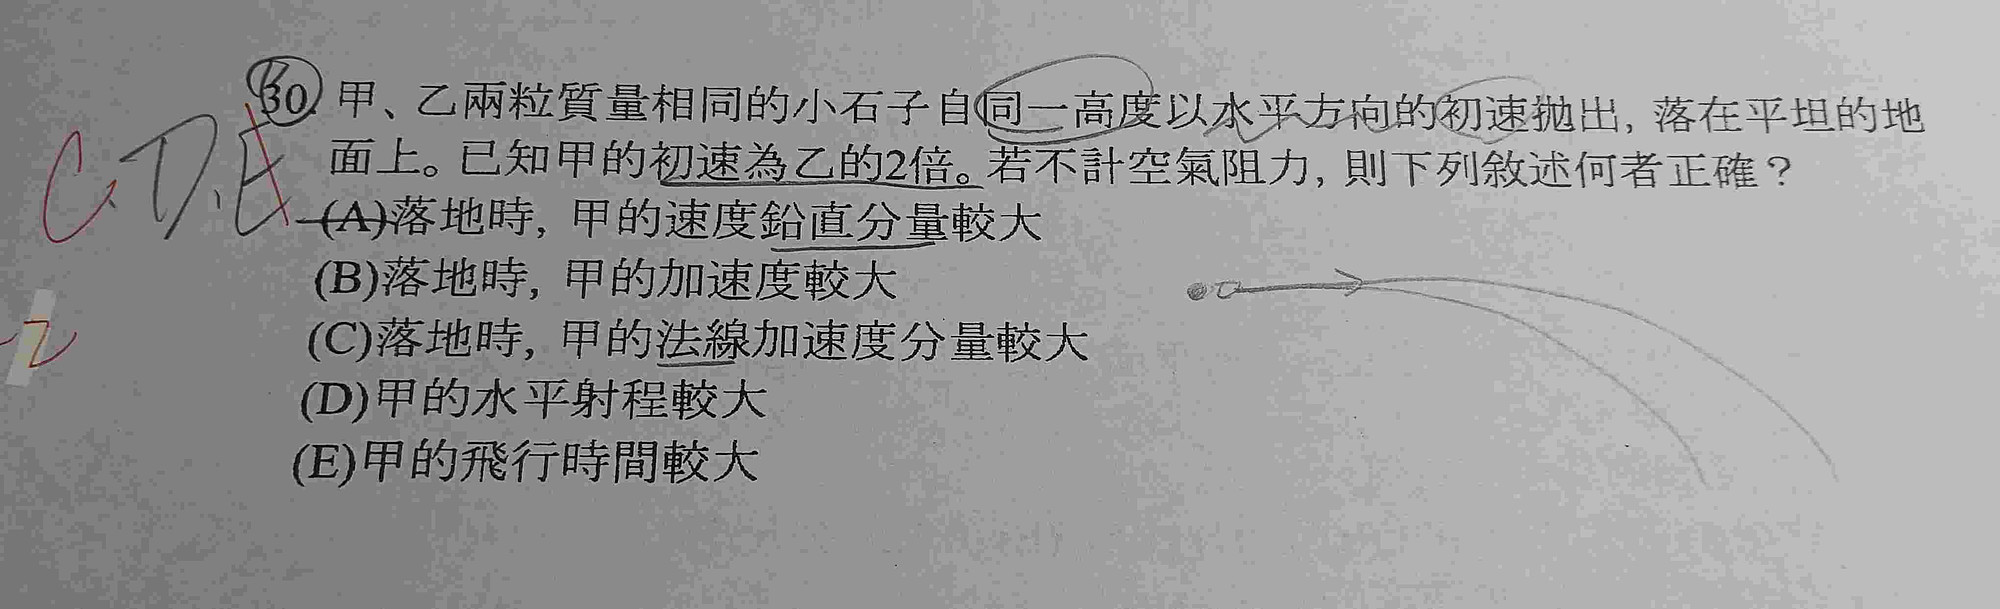 30. 甲、乙兩粒質量相同的小石子自同一高度以水平方向的初速拋出, 落在平坦的地
C.D.E 面上。已知甲的初速為乙的2倍。若不計空氣阻力, 則下列敘述何者正確?
(A)落地時, 甲的速度鉛直分量較大
(B)落地時, 甲的加速度較大
-2 (C)落地時, 甲的法線加速度分量較大
(D)甲的水平射程較大
(E)甲的飛行時間較大